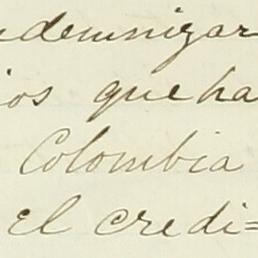 ndemnizar
ios que ha
Colombia
el credi=